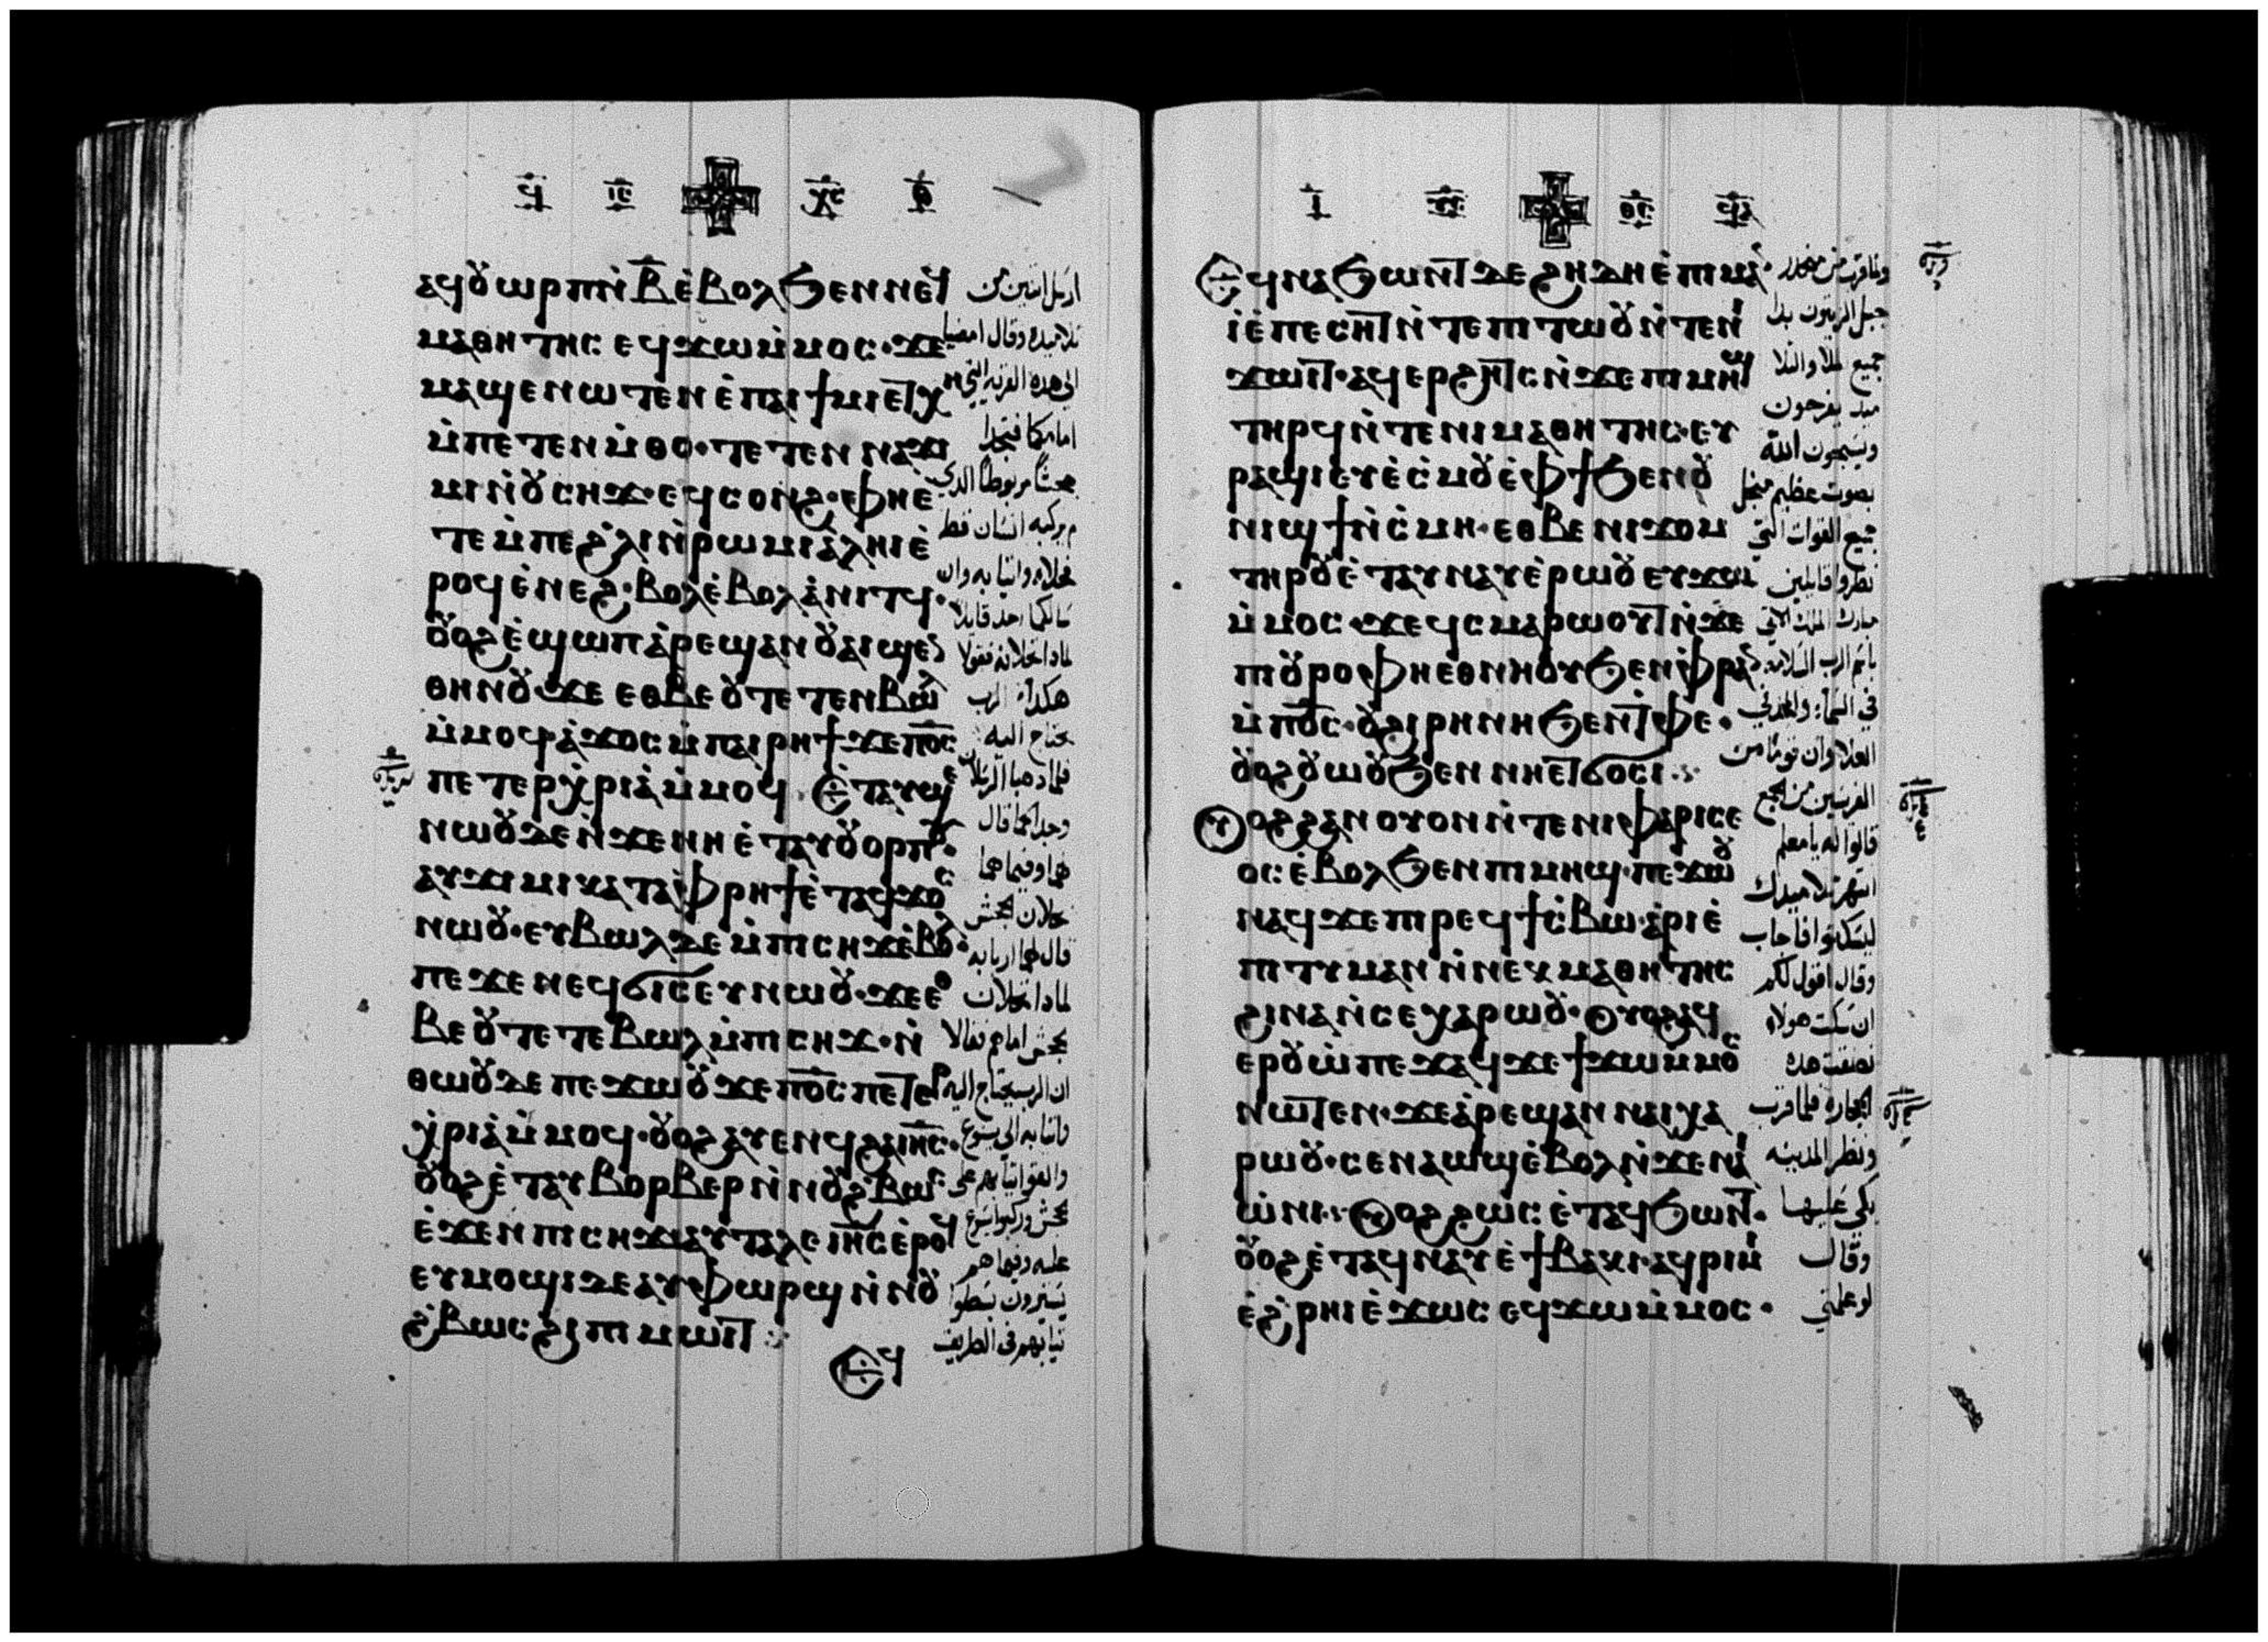 ϥ ⲓⲥ ⲭⲥ ⲑ
ⲁϥⲟⲩⲱⲣⲡ ⲛ̀ⲃ̅ ⲉ̀ⲃⲟⲗ ϧⲉⲛ ⲛⲉϥ
ⲙⲁⲑⲏⲧⲏⲥ ⲉϥϫⲱ ⲙ̀ⲙⲟⲥ· ϫⲉ
ⲙⲁϣⲉⲛⲱⲧⲉⲛ ⲉ̀ⲡⲁⲓϯⲙⲓ ⲉⲧⲭ
ⲙ̀ⲡⲉⲧⲉⲛⲙ̀ⲑⲟ· ⲧⲉⲧⲉⲛⲛⲁϫⲓ
ⲙⲓ ⲛ̀ⲟⲩⲥⲏϫ· ⲉϥⲥⲟⲛϩ· ⲫⲏ ⲉ̀
ⲧⲉ ⲙ̀ⲡⲉ ϩⲗⲓ ⲛ̀ⲣⲱⲙⲓ ⲁ̀ⲗⲏⲓ ⲉ̀
ⲣⲟϥ ⲉ̀ⲛⲉϩ· ⲃⲟⲗϥ ⲉ̀ⲃⲟⲗ ⲁ̀ⲛⲓⲧϥ·
ⲟⲩⲟϩ ⲉ̀ϣⲱⲡ ⲁ̀ⲣⲉϣⲁⲛ ⲟⲩⲁⲓ ϣⲉⲛ
ⲑⲏⲛⲟⲩ· ϫⲉ ⲉⲑⲃⲉ ⲟⲩ ⲧⲉⲧⲉⲛⲃⲱⲗ
ⲙ̀ⲙⲟϥ ⲁ̀ϫⲟⲥ ⲙ̀ⲡⲁⲓⲣⲏϯ ϫⲉ ⲡⲟ̅ⲥ̅
ⲡⲉⲧⲉⲣⲭ̀ⲣⲓⲁ̀ ⲙ̀ⲙⲟϥ· ⲉ̀ⲧⲁⲩϣⲉ
ⲛⲱⲟⲩ ⲇⲉ ⲛ̀ϫⲉ ⲛⲏ ⲉ̀ⲧⲁⲩⲟⲩⲟⲣⲡⲟⲩ·
ⲁⲩϫⲓⲙⲓ ⲕⲁⲧⲁ ⲫ̀ⲣⲏϯ ⲉ̀ⲧⲁϥϫⲟⲥ
ⲛⲱⲟⲩ· ⲉⲩⲃⲱⲗ ⲇⲉ ⲙ̀ⲡⲓⲥⲏϫ ⲉ̀ⲃⲟⲗ·
ⲡⲉϫⲉ ⲛⲉϥϭⲓⲥⲉⲩ ⲛⲱⲟⲩ· ϫⲉ ⲉⲑ
ⲃⲉ ⲟⲩ ⲧⲉⲧⲉⲃⲱⲗ ⲙ̀ⲡⲓⲥⲏϫ· ⲛ̀
ⲑⲱⲟⲩ ⲇⲉ ⲡⲉϫⲱⲟⲩ ϫⲉ ⲡⲟ̅ⲥ̅ ⲡⲉⲧⲉⲣ
ⲭ̀ⲣⲓⲁ̀ ⲙ̀ⲙⲟϥ· ⲟⲩⲟϩ ⲁⲩⲉⲛϥ ϩⲁ ⲓⲏ̅ⲥ̅·
ⲟⲩⲟϩ ⲉ̀ⲧⲁⲩⲃⲟⲣⲃⲉⲣ ⲛ̀ⲛⲟⲩϩ̀ⲃⲱⲥ
ⲉ̀ϫⲉⲛ ⲡⲓⲥⲏϫ ⲁⲩⲧⲁⲗⲉ ⲓⲏ̅ⲥ̅ ⲉ̀ⲣⲟϥ
ⲉⲩⲙⲟϣⲓ ⲇⲉ ⲁⲩⲫⲱⲣϣ ⲛ̀ⲛⲟⲩ
ϩ̀ⲃⲱⲥ ϩⲓ ⲡⲓⲙⲱⲓⲧ
ⲉⲧϥ
ارسل اثنين من
تلاميذه وقال امضيا
الى هذه القريه التي
امامكما فتجدا
جحشًا مربوطًا الذي
لم يركبه انسان قط
فحلاه واتيا به وان
سالكما احد قايلا
لماذا تحلانه فقولا
هكذا ان الرب
يحتاج اليه
فلما ذهبا الرسلان
وجدا كما قال
لهما وفيما هما
يحلان الجحش
قال لهما اربابه
لماذا تحلان
الجحش اما هم فقالا
ان الرب يحتاج اليه
فاتيا به الي يسوع
والقوا ثيابهم على
الجحش وركبوا يسوع
عليه وفيما هم
يسيرون بسطوا
ثيابهم في الطريق
ⲓ ⲑⲥ ϥⲁ
ⲉ̀ⲧⲁϥⲛⲁϧⲱⲛⲧ ⲇⲉ ϩⲏⲇⲏ ⲉ̀ⲡⲓⲙⲁ ⲛ̀
ⲓ̀ ⲉ̀ⲡⲉⲥⲏⲧ ⲛ̀ⲧⲉ ⲡⲓⲧⲱⲟⲩ ⲛ̀ⲧⲉ ⲛⲓ
ϫⲱⲓⲧ· ⲁϥⲉⲣϩⲏⲧⲥ ⲛ̀ϫⲉ ⲡⲓⲙⲏϣ
ⲧⲏⲣϥ ⲛ̀ⲧⲉ ⲛⲓⲙⲁⲑⲏⲧⲏⲥ· ⲉⲩ
ⲣⲁϣⲓ ⲉⲩⲉ̀ⲥ̀ⲙⲟⲩ ⲉ̀ⲫϯ ϧⲉⲛ ⲟⲩ
ⲛⲓϣϯ ⲛ̀ⲥ̀ⲙⲏ· ⲉⲑⲃⲉ ⲛⲓϫⲟⲙ
ⲧⲏⲣⲟⲩ ⲉ̀ⲧⲁⲩⲛⲁⲩ ⲉ̀ⲣⲱⲟⲩ ⲉⲩϫⲱ
ⲙ̀ⲙⲟⲥ· ϫⲉ ϥⲥⲙⲁⲣⲱⲟⲩⲧ ⲛ̀ϫⲉ
ⲡⲓⲟⲩⲣⲟ ⲫⲏ ⲉⲑⲛⲏⲟⲩ ϧⲉⲛ ⲫ̀ⲣⲁⲛ
ⲙ̀ⲡⲟ̅ⲥ̅· ⲟⲩϩⲓⲣⲏⲛⲏ ϧⲉⲛ ⲧ̀ⲫⲉ·
ⲟⲩⲟϩ ⲟⲩⲱⲟⲩ ϧⲉⲛ ⲛⲏⲉⲧϭⲟⲥⲓ
ⲟⲩⲟϩ ϩⲁⲛⲟⲩⲟⲛ ⲛ̀ⲧⲉ ⲛⲓⲫⲁⲣⲓⲥⲉ
ⲟⲥ ⲉ̀ⲃⲟⲗ ϧⲉⲛ ⲡⲓⲙⲏϣ· ⲡⲉϫⲱⲟⲩ
ⲛⲁϥ ϫⲉ ⲡⲓⲣⲉϥϯⲥ̀ⲃⲱ· ⲁ̀ⲣⲓⲉ̀
ⲡⲓⲧⲩⲙⲁⲛ ⲛ̀ⲛⲉⲕⲙⲁⲑⲏⲧⲏⲥ
ϩⲓⲛⲁ ⲛ̀ⲥⲉⲭⲁⲣⲱⲟⲩ· ⲟⲩⲟϩ ⲁϥ
ⲉⲣⲟⲩⲱ̀ ⲡⲉϫⲁϥ ϫⲉ ϯϫⲱ ⲙ̀ⲙⲟⲥ
ⲛⲱⲧⲉⲛ· ϫⲉ ⲁ̀ⲣⲉϣⲁⲛ ⲛⲁⲓ ⲭⲁ
ⲣⲱⲟⲩ· ⲥⲉⲛⲁⲱϣ ⲉ̀ⲃⲟⲗ ⲛ̀ϫⲉ ⲛⲓ
ⲱ̀ⲛⲓ· ⲟⲩⲟϩ ϩⲱⲥ ⲉ̀ⲧⲁϥϧⲱⲛⲧ·
ⲟⲩⲟϩ ⲉ̀ⲧⲁϥⲛⲁⲩ ⲉ̀ϯⲃⲁⲕⲓ· ⲁϥⲣⲓⲙⲓ
ⲉ̀ϩ̀ⲣⲏⲓ ⲉ̀ϫⲱⲥ ⲉϥϫⲱ ⲙ̀ⲙⲟⲥ·
ولما قرب من منحدر
جبل الزيتون بدا
جميع الملا والتلا
ميذ يفرحون
ويسبحون الله
بصوت عظيم من اجل
جميع القوات التي
نظروا قايلين
مبارك الملك الاتي
باسم الرب السلامه
في السماء والمجد في
العلا وان قومًا من
الفريسين من الجمع
قالوا له يا معلم
انتهر تلاميذك
ليسكتوا فاجاب
وقال اقول لكم
ان سكت هولاء
نطقت هذه
الحجاره فلما قرب
ونظر المدينه
بكي عليها
وقال
لو علمتي